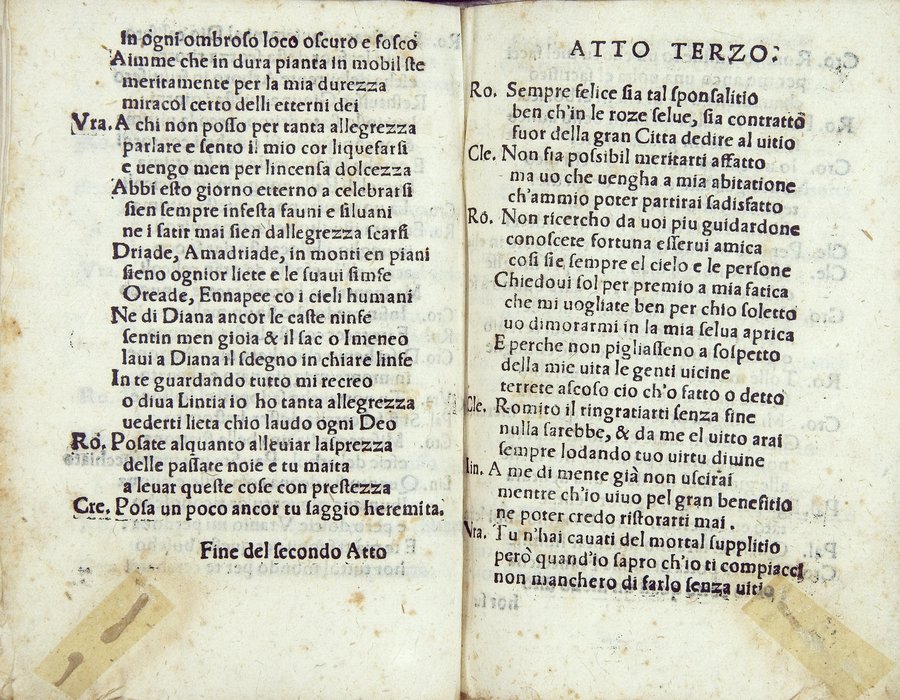 In ogni ombroso loco oscuro e fosco
Aimme che in dura pianta in mobil ste
meritamente per la mia durezza
miracol certo delli etterni dei
Vra. A chi non posso per tanta allegrezza
parlare e sento il mio cor liquefarsi
e uengo men per lincensa dolcezza
Abbi esto giorno etterno a celebrarsi
sien sempre infesta fauni e siluani
ne i satir mai sien dallegrezza scarsi
Driade, Amadriade, in monti en piani
sieno ognior liete e le suaui simfe
Oreade, Ennapee co i cieli humani
Ne di Diana ancor le caste ninfe
sentin men gioia & il sac o Imeneo
laui a Diana il sdegno in chiare linfe
In te guardando tutto mi recreo
o diua Lintia io ho tanta allegrezza
uederti lieta chio laudo ogni Deo
Ro. Posate alquanto alleuiar lasprezza
delle passate noie e tu maita
a leuar queste cose con prestezza
Cre. Posa un poco ancor tu saggio heremita.
Fine del secondo Atto
ATTO TERZO.
Ro. Sempre felice sia tal sponsalitio
ben ch'in le roze selue, sia contratto
fuor della gran Citta dedire al uitio
Cle. Non sia possibil meritarti affatto
ma uo che uengha a mia abitatione
ch'ammio poter partirai sadisfatto
Ro. Non ricercho da uoi piu guidardone
conoscete fortuna esserui amica
cosi sie sempre el cielo e le persone
Chiedoui sol per premio a mia fatica
che mi uogliate ben per chio soletto
uo dimorarmi in la mia selua aprica
E perche non pigliasseno a sospetto
della mie uita le genti uicine
terrete ascoso cio ch'o fatto o detto
Cle. Romito il ringratiarti senza fine
nulla sarebbe, & da me el uitto arai
sempre lodando tuo uirtu diuine
Lin. A me di mente già non uscirai
mentre ch'io uiuo pel gran benefitio
ne poter credo ristorarti mai.
Vra. Tu n'hai cauati del mortal supplitio
però quand'io sapro ch'io ti compiacci
non manchero di farlo senza uitio